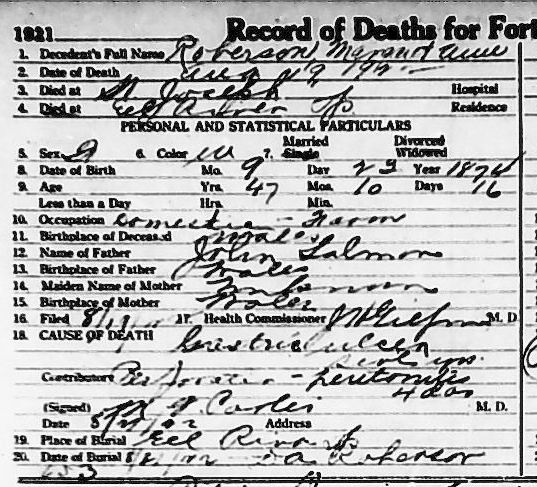 1921. Record of Deaths for Fort
1. Decedent's Full Name Roberson Margaret Anne
2. Date of Death Aug
3. Died at St Joseph Hospital
4. Died at Eel River Tp Residence
PERSONAL AND STATISTICAL PARTICULARS
Married Divorced
5. Sex 6. Color W 7. Single Widowed
8. Date of Birth Mo. 9 Day 23 Year 1874
9. Age Yrs. 47 Mos. 10 Days 16
Less than a Day Hrs. Min.
10. Occupation Domestic - Farm
11. Birthplace of Deceased Wales
12. Name of Father John Salmon
13. Birthplace of Father Wales
14. Maiden Name of Mother Unknown
15. Birthplace of Mother Wales
16. Filed 8/ 17. Health Commissioner M. D.
18. CAUSE OF DEATH Gastric ulcer
yrs.
Contributory Perforation - Peritonitis
4 das
(Signed) M. D.
Date Address
19. Place of Burial Eel River Tp
20. Date of Burial Roberson